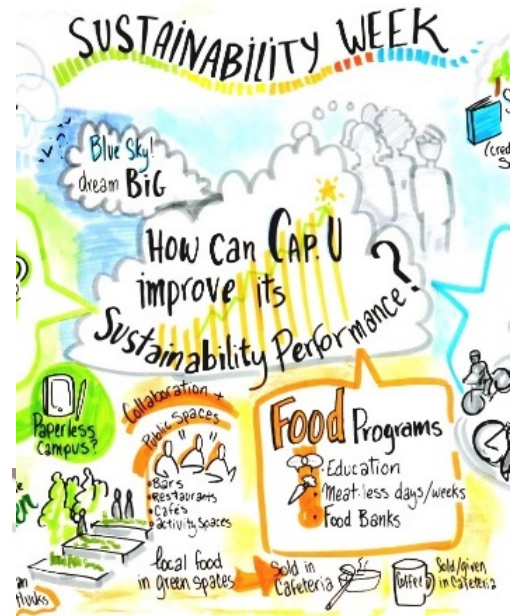 SUSTAINABILITY WEEK
Blue Sky!
dream BiG
HOW CAN CAP.U
improve its
Sustainability Performance?
Paperless
Campus?
Collaboration +
Public Spaces
• Bars
• Restaurants
• Cafés
• activity Spaces
local food
in green spaces
Food Programs
• Education
• Meat-less days/weeks
• Food Banks
Sold in
Cafeteria
Coffee
Sold/given
in Cafeteria